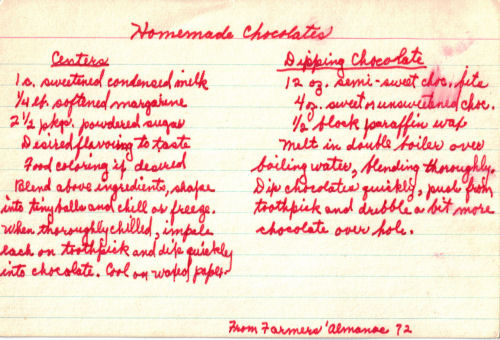 Homemade Chocolates
Centers
1 c. sweetined condensed milk
1/4 lb. softened margarine
2 1/2 pkgs. powdered sugar
Desired flavoring to taste
Food coloring if desired
Blend above ingredients, shape
into tiny balls and chill or freeze.
When thoroughly chilled, impale
each on toothpick and dip quickly
into chocolate. Cool on waxed paper.
Dipping Chocolate
12 oz. semi-sweet choc. bits
4 oz. sweet or unsweetened choc.
1/2 block paraffin wax
Melt in double boiler over
boiling water, blending thoroughly.
Dip chocolates quickly, push from
toothpick and dribble a bit more
chocolate over hole.
From Farmers' Almanac 72